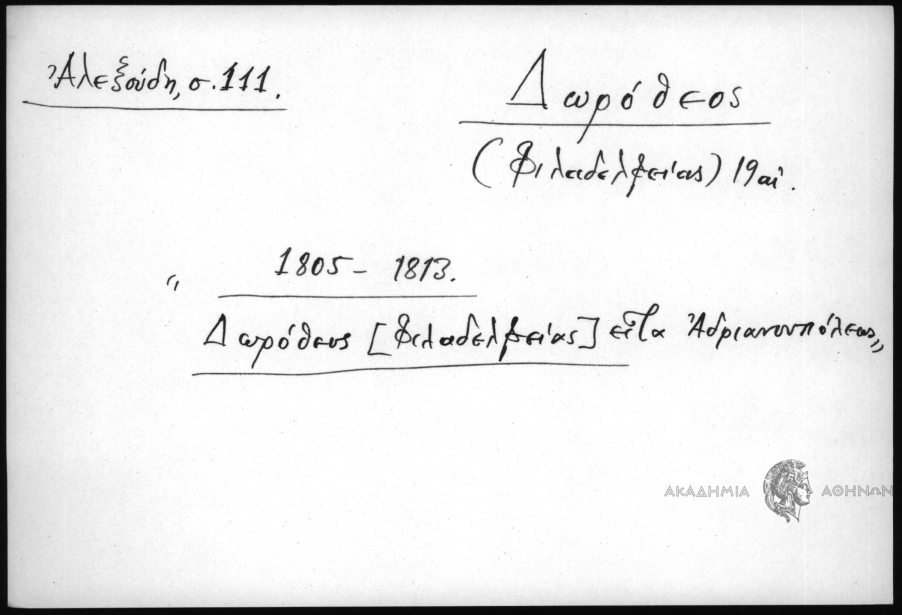 Ἀλεξούδη, σ. 111.
Δωρόθεος
(Φιλαδελφείας) 19αι.
" 1805 – 1813.
Δωρόθεος [Φιλαδελφείας] εἶτα Ἀδριανουπόλεως„
ΑΚΑΔΗΜΙΑ ΑΘΗΝΩΝ